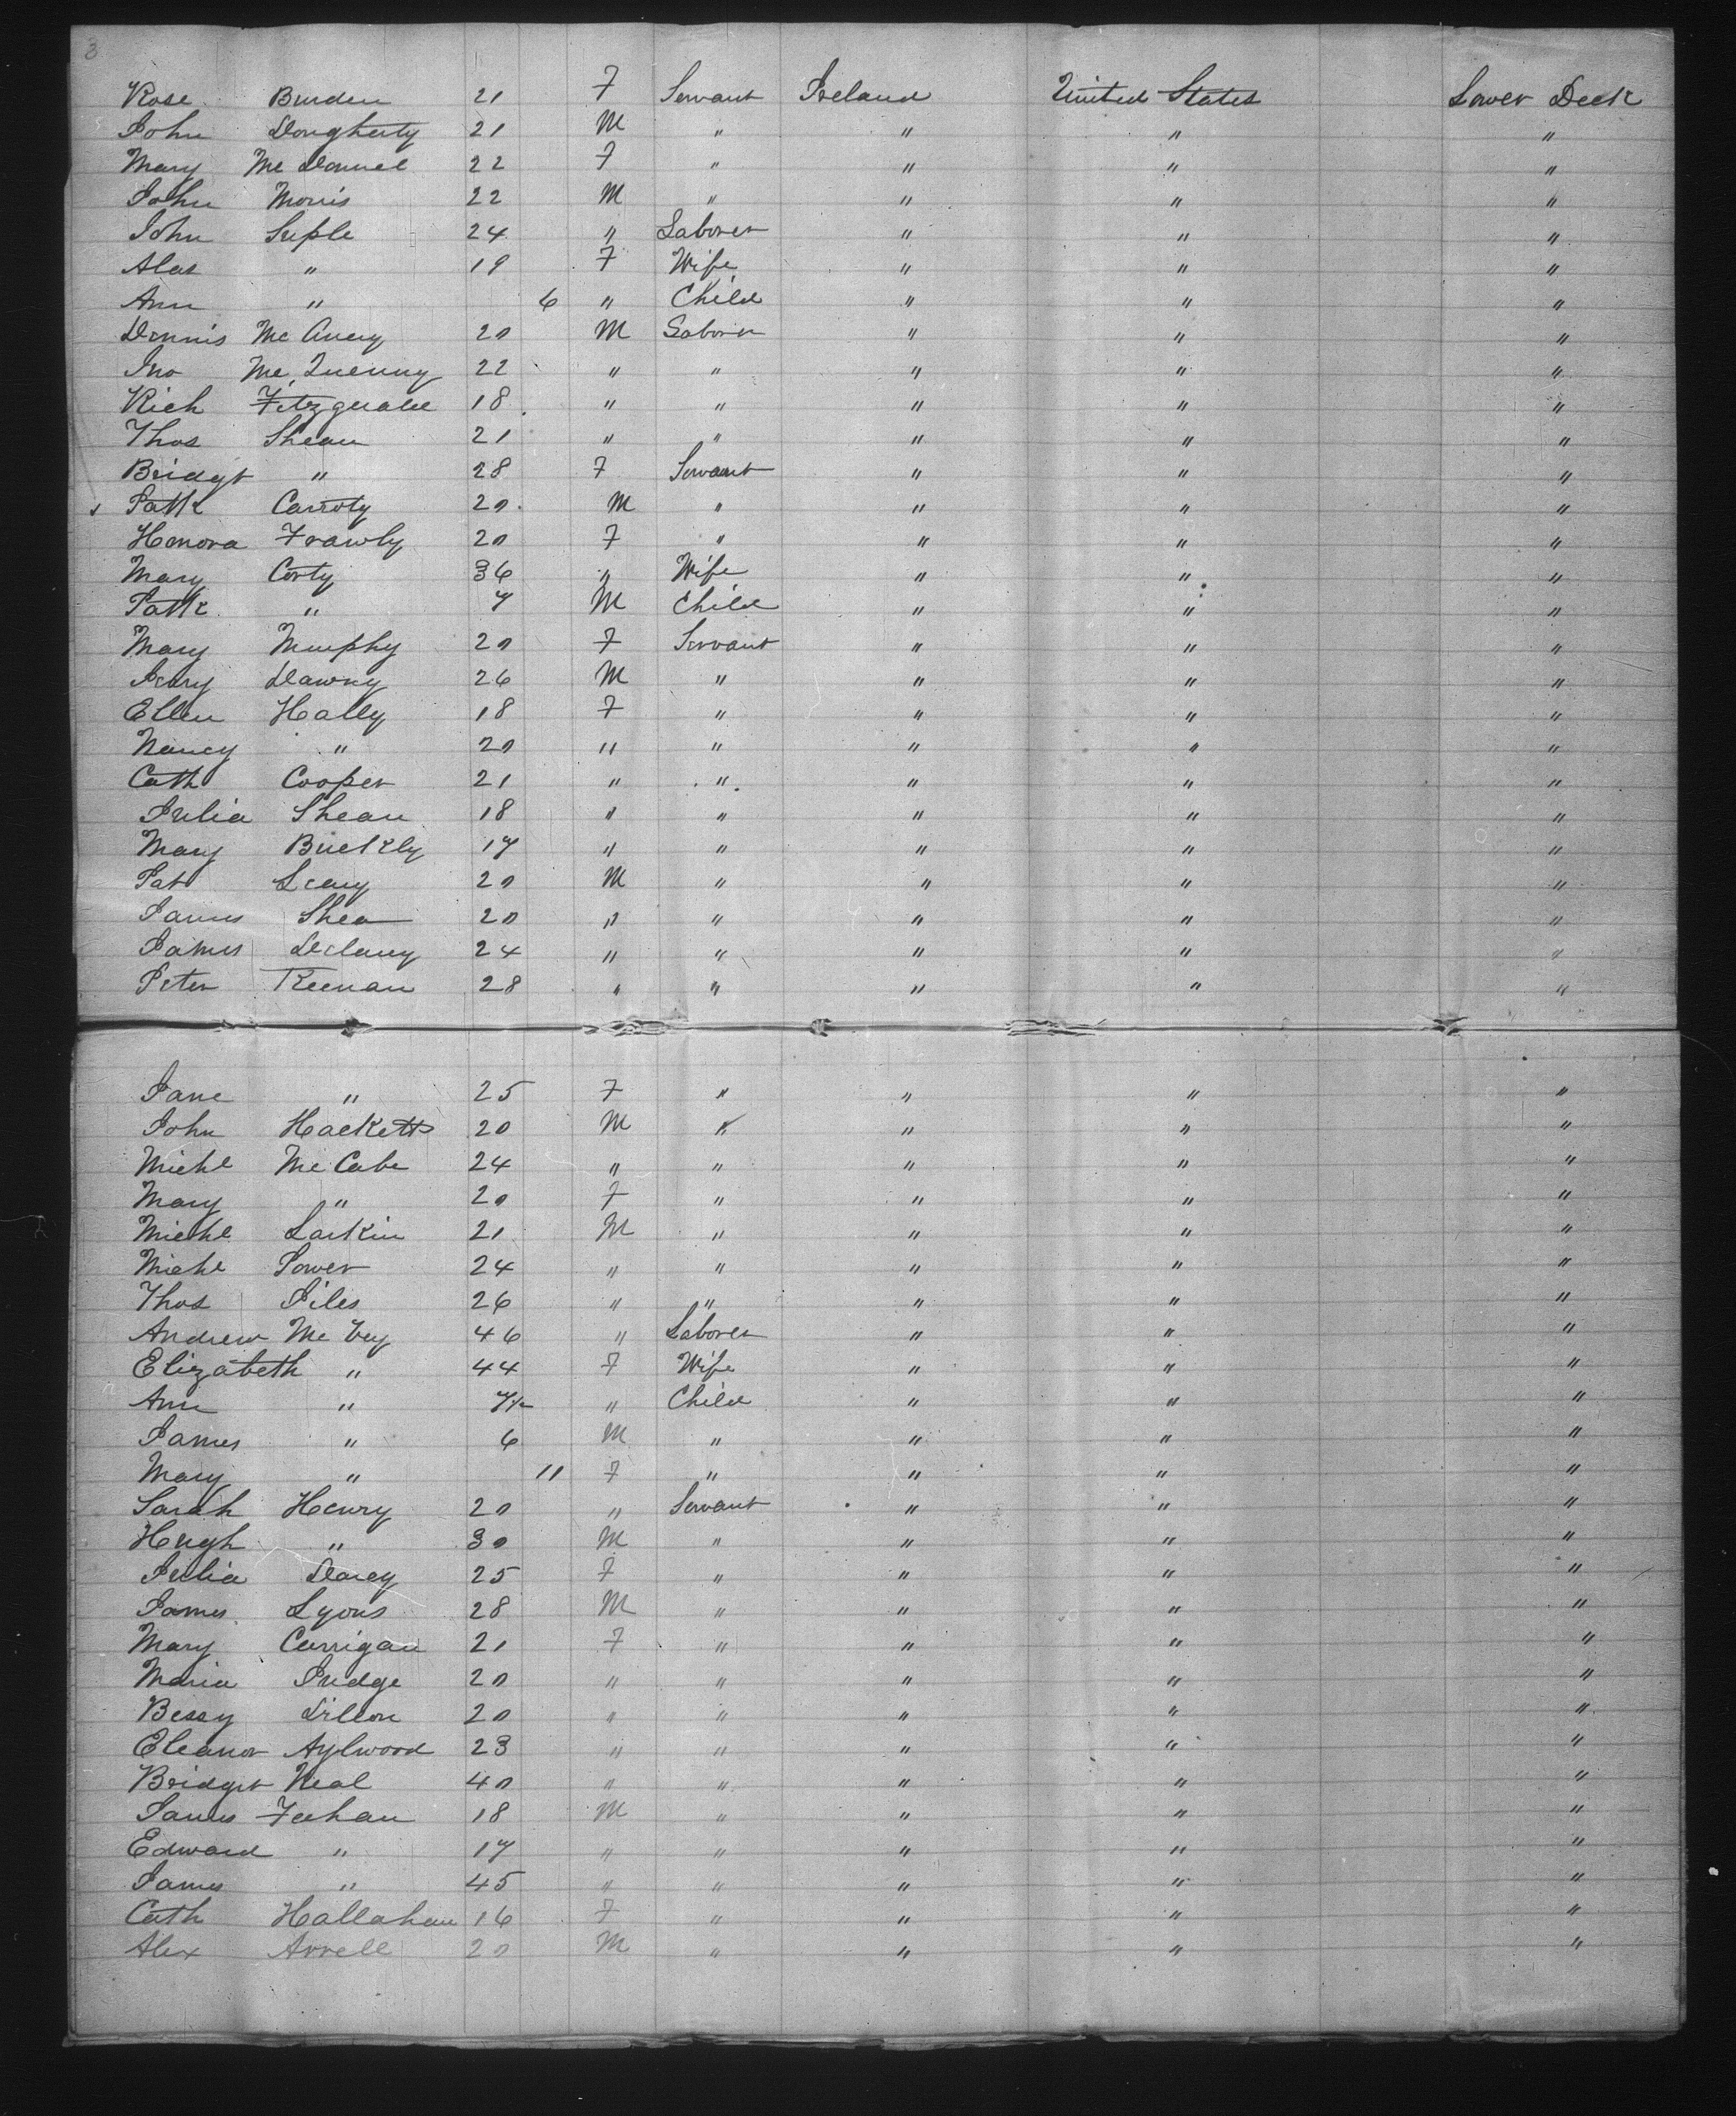 3
Rose Burden 21 F Servant Ireland United States Lower Deck
John Dougherty 21 M " " " "
Mary Mc Donnel 22 F " " " "
John Morris 22 M " " " "
John Suple 24 " Laborer " " "
19 F Wife " " "
Ann " 6 " Child " " "
Dennis Mc 20 M Laborer " " "
Jno Mc 22 " " " " "
Rich Fitzgerald 18 " " " " "
Thos Shean 21 " " " " "
Bridgt " 28 F Servant " " "
Patk Carroty 20 M " " " "
Honora Frawly 20 F " " " "
Mary Corty 36 " Wife " " "
Patk " 7 M Child " " "
Mary Murphy 20 F Servant " " "
Dawny 26 M " " " "
Ellen Hally 18 F " " " "
Nancy " 20 " " " " "
Cath Cooper 21 " " " " "
Julia Shean 18 " " " " "
Mary Buckly 17 " " " " "
Pat Leary 20 M " " " "
James Shea 20 " " " " "
James Delany 24 " " " " "
Peter Keenan 28 " " " " "
Jane " 25 F " " " "
John Hackett 20 M " " " "
Michl Mc Cabe 24 " " " " "
Mary " 20 F " " " "
Michl Larkin 21 M " " " "
Michl Power 24 " " " " "
Thos Piles 26 " " " " "
Andrew Mc Vey 46 " Laborer " " "
Elizabeth " 44 F Wife " " "
Ann " " Child " " "
James " 6 M " " " "
Mary " 11 F " " " "
Sarah Henry 20 " Servant " " "
Hugh " 30 M " " " "
Julia Darcy 25 F " " " "
James Lyons 28 M " " " "
Mary Carrigan 21 F " " " "
Maria Judge 20 " " " " "
Bessy Dillon 20 " " " " "
Eleanor Aylwood 23 " " " " "
Bridget Neal 40 " " " " "
James Feehan 18 M " " " "
Edward " 17 " " " " "
James " 45 " " " " "
Cath Hallahan 16 F " " " "
Alex Arrell 20 M " " " "